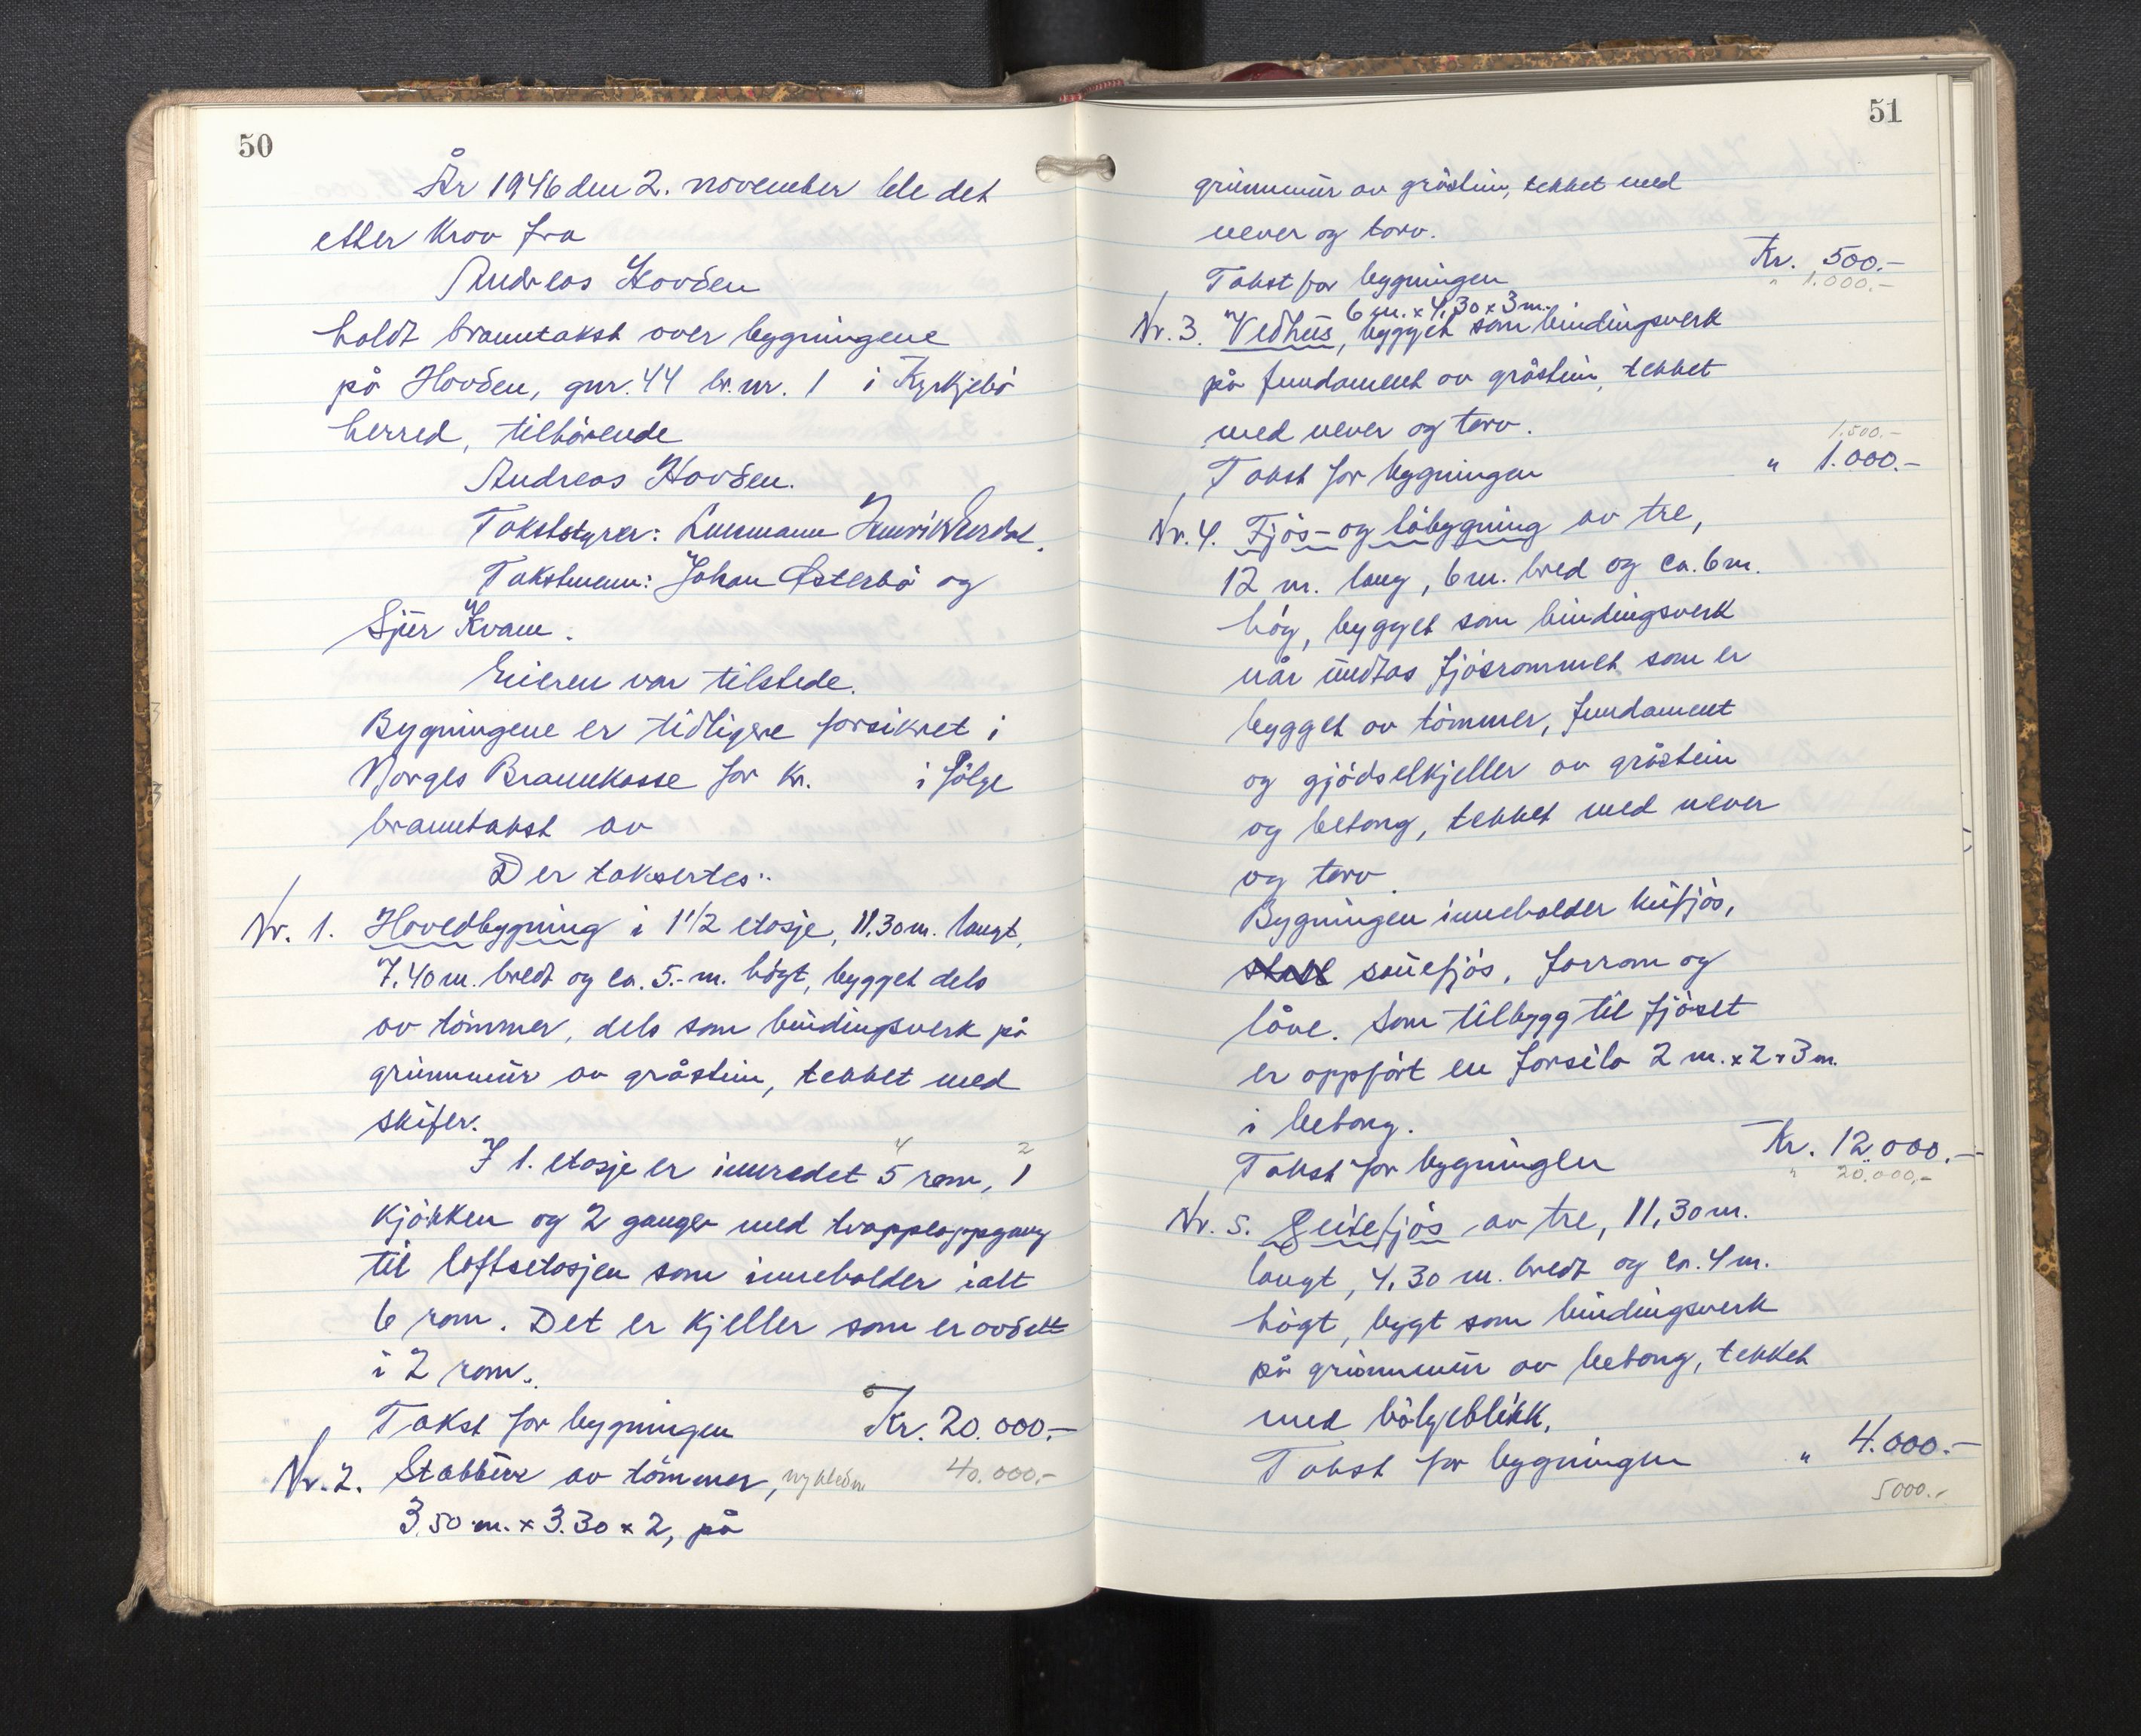 50
År 1946 den 2. november ble det
etter krav fra
Andreas Hovden
holdt branntakst over bygningene
på Hovden, gnr. 44 br.nr. 1 i Kyrkjebö
herred, tilhörende
Andreas Hovden.
Takststyrer: Lensmann Henrik
Takstmenn: Johan Østerbö og
Sjur Kvam.
Eieren var tilstede.
Bygningene er tidligere forsikret i
Norges Brannkasse for kr. i fölge
branntakst av
Der taksertes:
Nr. 1. Hovedbygning i 1 1/2 etasje, 11,30 m. langt,
7,40 m. bredt og ca. 5.- m. högt, bygget dels
av tömmer, dels som bindingsverk på
grunnmur av gråstein, tekket med
skifer.
4 2
I 1. etasje er innredet 5 rom, 1
kjökken og 2 ganger med trappeoppgang
til loftsetasjen som inneholder ialt
6 rom. Det er kjeller som er avdelt
i 2 rom.
Takst for bygningen Kr. 20.000.-
Nr. 2. Stabbur av tömmer, nykledn 40.000.-
3.50 m. x 3.30 x 2, på
51
grunnmur av gråstein, tekket med
never og torv.
Takst for bygningen Kr. 500.-
" 1.000.-
6 m. x 4,30 x 3 m.
Nr. 3. Vedhus, bygget som bindingsverk
på fundament av gråstein, tekket
med never og torv.
1.500.-
Takst for bygningen " 1.000.-
Nr. 4. Fjös- og låbygning av tre,
12 m. lang, 6 m. bred og ca. 6 m.
hög, bygget som bindingsverk
når undtas fjösrommet som er
bygget av tömmer, fundament
og gjödselkjeller av gråstein
og betong, tekket med never
og torv.
Bygningen inneholder kufjös,
stall sauefjös, forrom og
låve. Som tilbygg til fjöset
er oppfört en forsilo 2 m. x 2 x 3 m.
i betong.
Takst for bygningen Kr. 12.000.-
" 20.000.-
Nr. 5. Geitefjös av tre, 11,30 m.
langt, 4,30 m. bredt og ca. 4 m.
högt, bygt som bindingsverk
på grunnmur av betong, tekket
med bölgeblikk.
Takst for bygningen " 4.000.-
5000.-